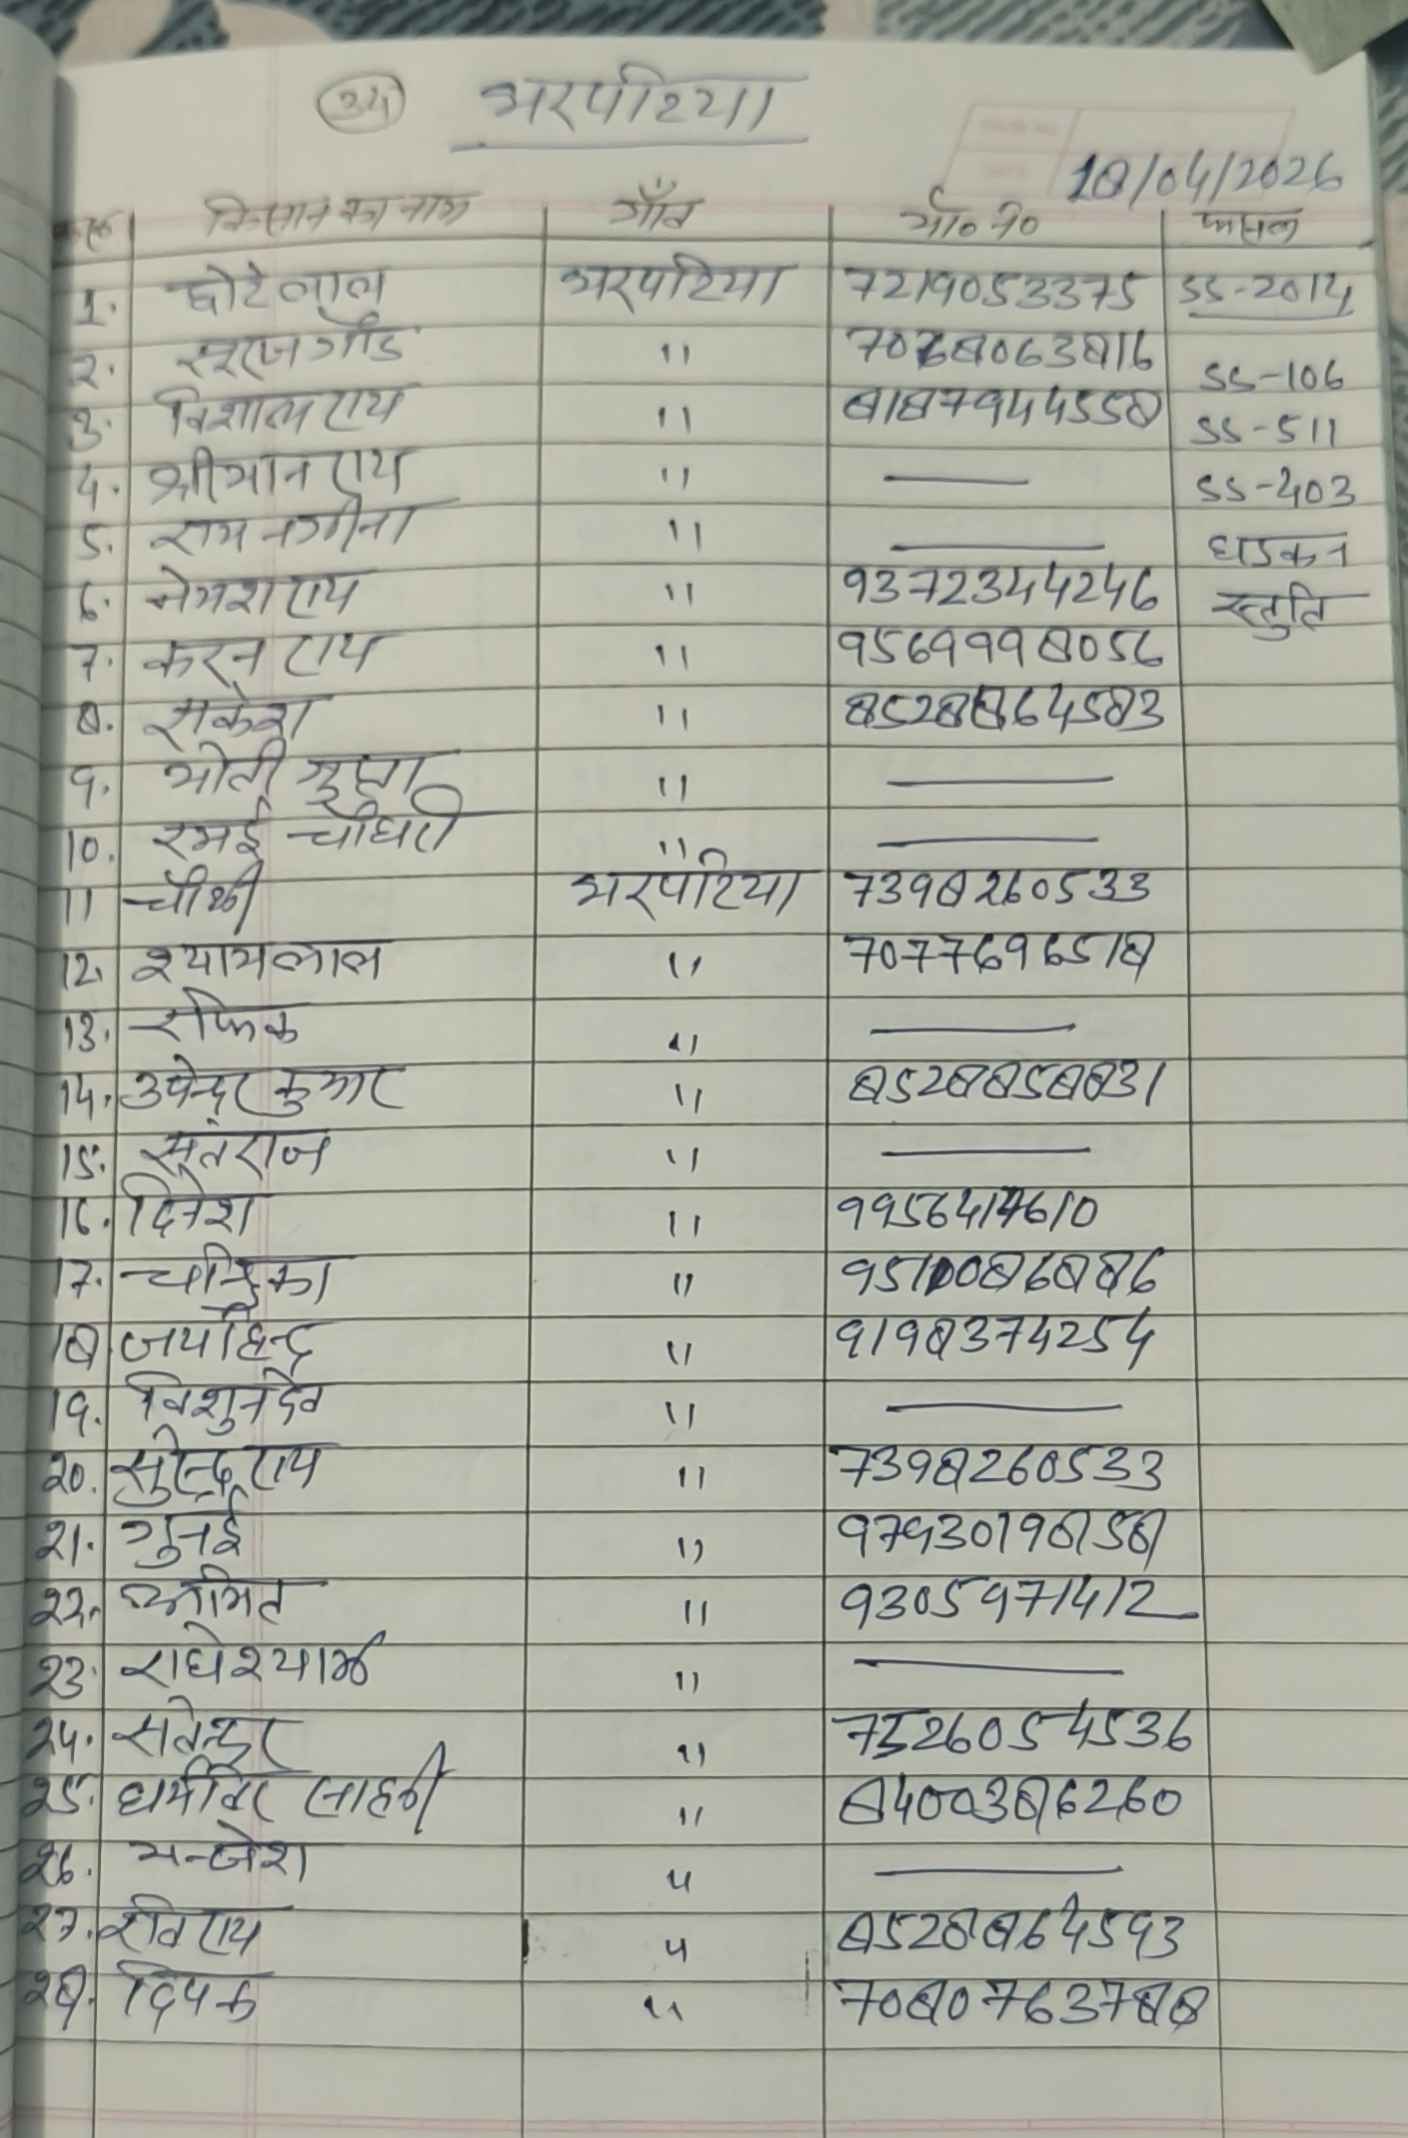 34 भरपटिया
18/04/2026
किसान का नाम गाँव मो० नं० फसल
1. छोटेलाल भरपटिया 7219053375 SS-2014
2. सूरज गोंड " 7068063816 SS-106
3. विशाल राय " 8187944558 SS-511
4. श्रीमान राय " — SS-403
5. राम नगीना " — धडकन
6. राय " 9372344246 स्तुति
7. करन राय " 9569998056
8. " 8528864583
9. मोती " —
10. रमई चौधरी " —
11 चौथी भरपटिया 7398260533
12. श्यामलाल " 7077696518
13. रफिक " —
14. उपेन्द्र कुमार " 8528858831
15. सुतराज " —
16. दिनेश " 9956417610
17. चन्द्रिका " 9510086886
18 जयहिन्द " 9198374254
19. विशुनदेव " —
20. सुरेन्द्र राय " 7398260533
21. गुनई " 9793019858
22. अमित " 9305971412
23. राधेश्याम " —
24. सतेन्द्र " 7326054536
25. धर्मविर साहनी " 8400386260
26. " —
27. रवि राय " 8528864593
28. दिपक " 7080763788